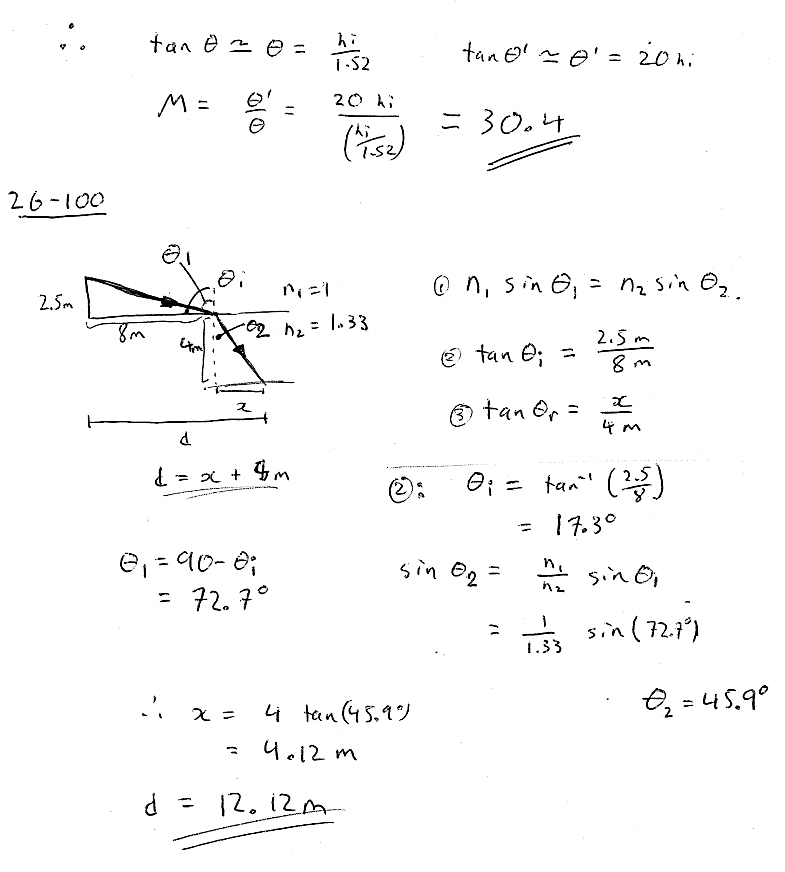 ∴ tan θ ≃ θ = hi/1.52 tan θ' ≃ θ' = 20 hi
M = θ'/θ = 20 hi/(hi/1.52) = 30.4
26-100
θ1
θi
2.5m n1=1
8m θ2 n2 = 1.33
4m
x
d
d = x + 8m
① n1 sin θ1 = n2 sin θ2.
② tan θi = 2.5 m/8 m
③ tan θr = x/4 m
②: θi = tan⁻¹ (2.5/8)
= 17.3°
θ1 = 90 - θi
= 72.7°
sin θ2 = n1/n2 sin θ1
= 1/1.33 sin(72.7°)
θ2 = 45.9°
∴ x = 4 tan(45.9°)
= 4.12 m
d = 12.12m